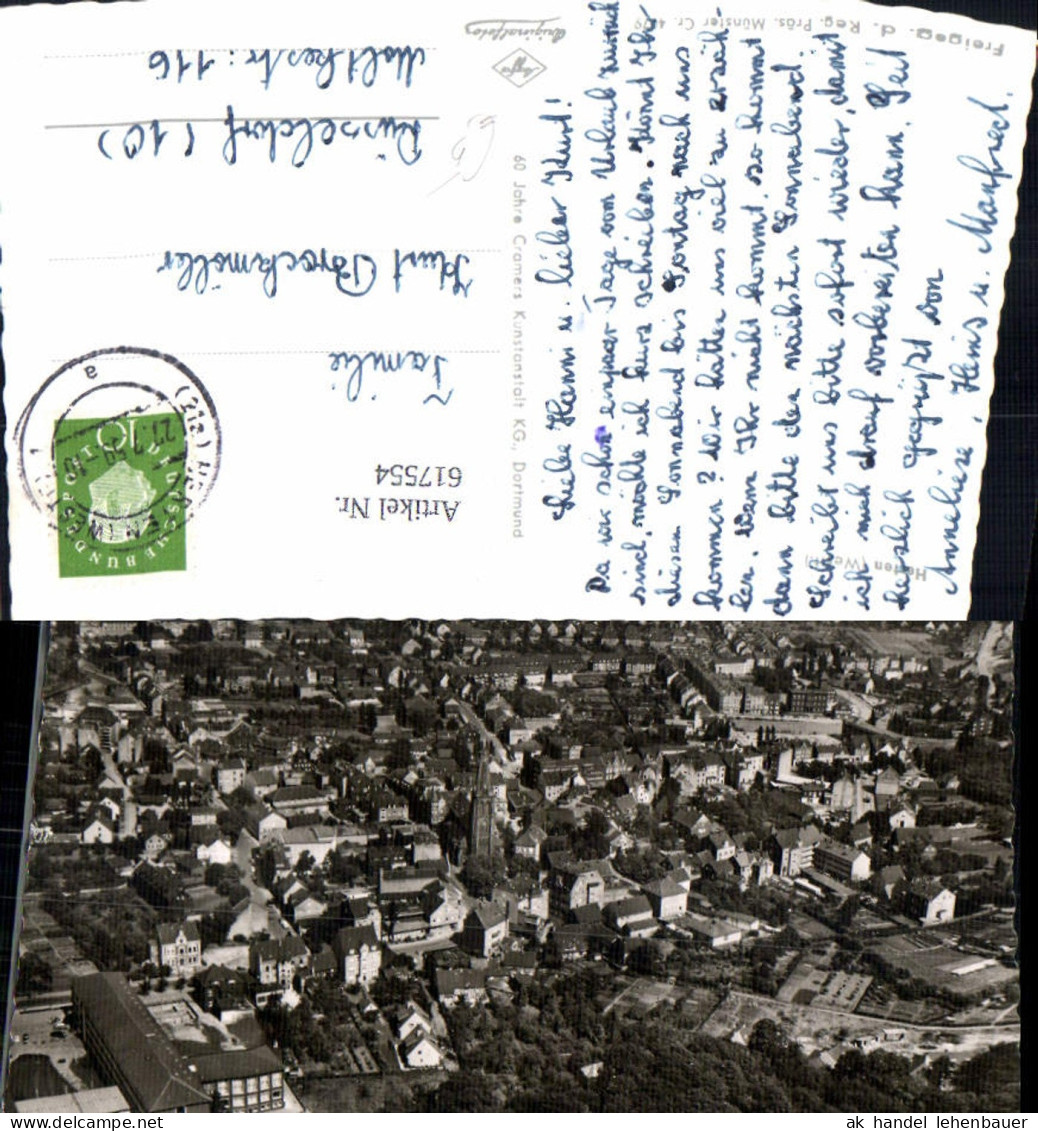 Freigeg. d. Reg. Präs. Münster Cr. 4409
Originalfotos
Agfa
60 Jahre Cramers Kunstanstalt KG., Dortmund
Herten (Westf.)
Liebe Hanni u. lieber Kurt!
Da wir schon einpaar Tage vom Urlaub zurück
sind, möchte ich kurz schreiben. Könnt Ihr
diesen Sonnabend bis Sontag nach uns
kommen? Wir hätten uns viel zu erzäh-
len. Wenn Ihr nicht kommt, so kommt
dann bitte den nächsten Sonnabend.
Schreibt uns bitte sofort wieder, damit
ich mich drauf vorbereiten kann. Seit
herzlich gegrüßt von
Anneliese, Heins u. Manfred.
Familie
Kurt Brockmöler
Düsseldorf (10)
Moltkestr: 116
Artikel Nr.
617554
DEUTSCHE BUNDESPOST
10
a
ak handel lehenbauer